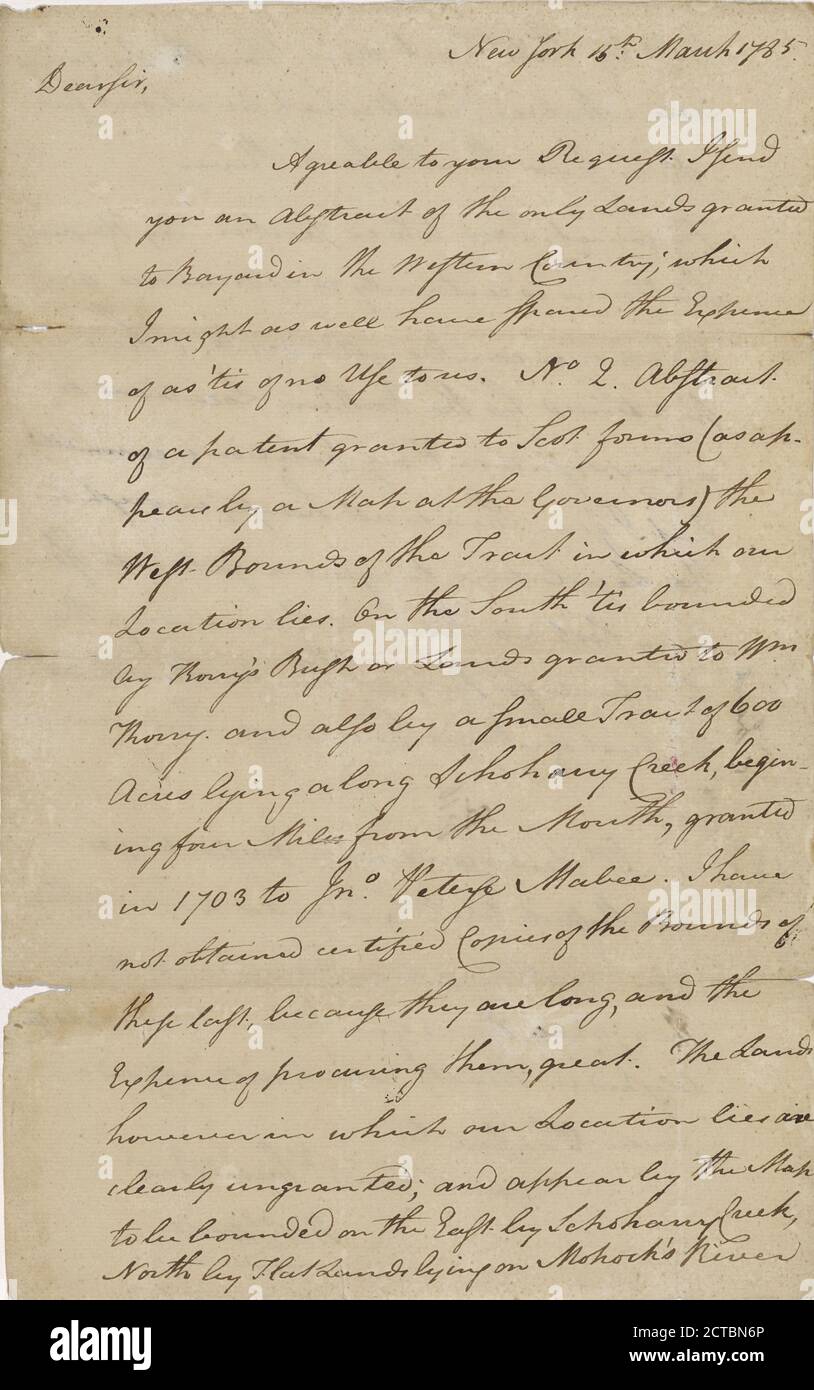 New York 15th. March 1785.
Dear Sir,
Agreable to your Request I send
you an Abstract of the only Lands granted
to Bayard in the Western Country; which
I might as well have spared the Expence
of as 'tis of no Use to us. No. 2. Abstract
of a patent granted to Scot forms (as ap-
pears by a Map at the Governors) the
West Bounds of the Tract in which our
Location lies. On the South 'tis bounded
by Corry's Bush or Lands granted to Wm
Corry. and also by a small Tract of 600
Acres lying along Schohary Creek, begin-
ing four Miles from the Mouth, granted
in 1703 to Jno. Peterse Mabee. I have
not obtained certified Copies of the Bounds of
these last. because they are long, and the
Expence of procuring them, great. The Lands
however in which our Location lies are
clearly ungranted; and appear by the Map
to be bounded on the East by Schohary Creek,
North by Flat Lands lying on Mohock's River
alamy
a
alamy
Image ID: 2CTBN6P
www.alamy.com